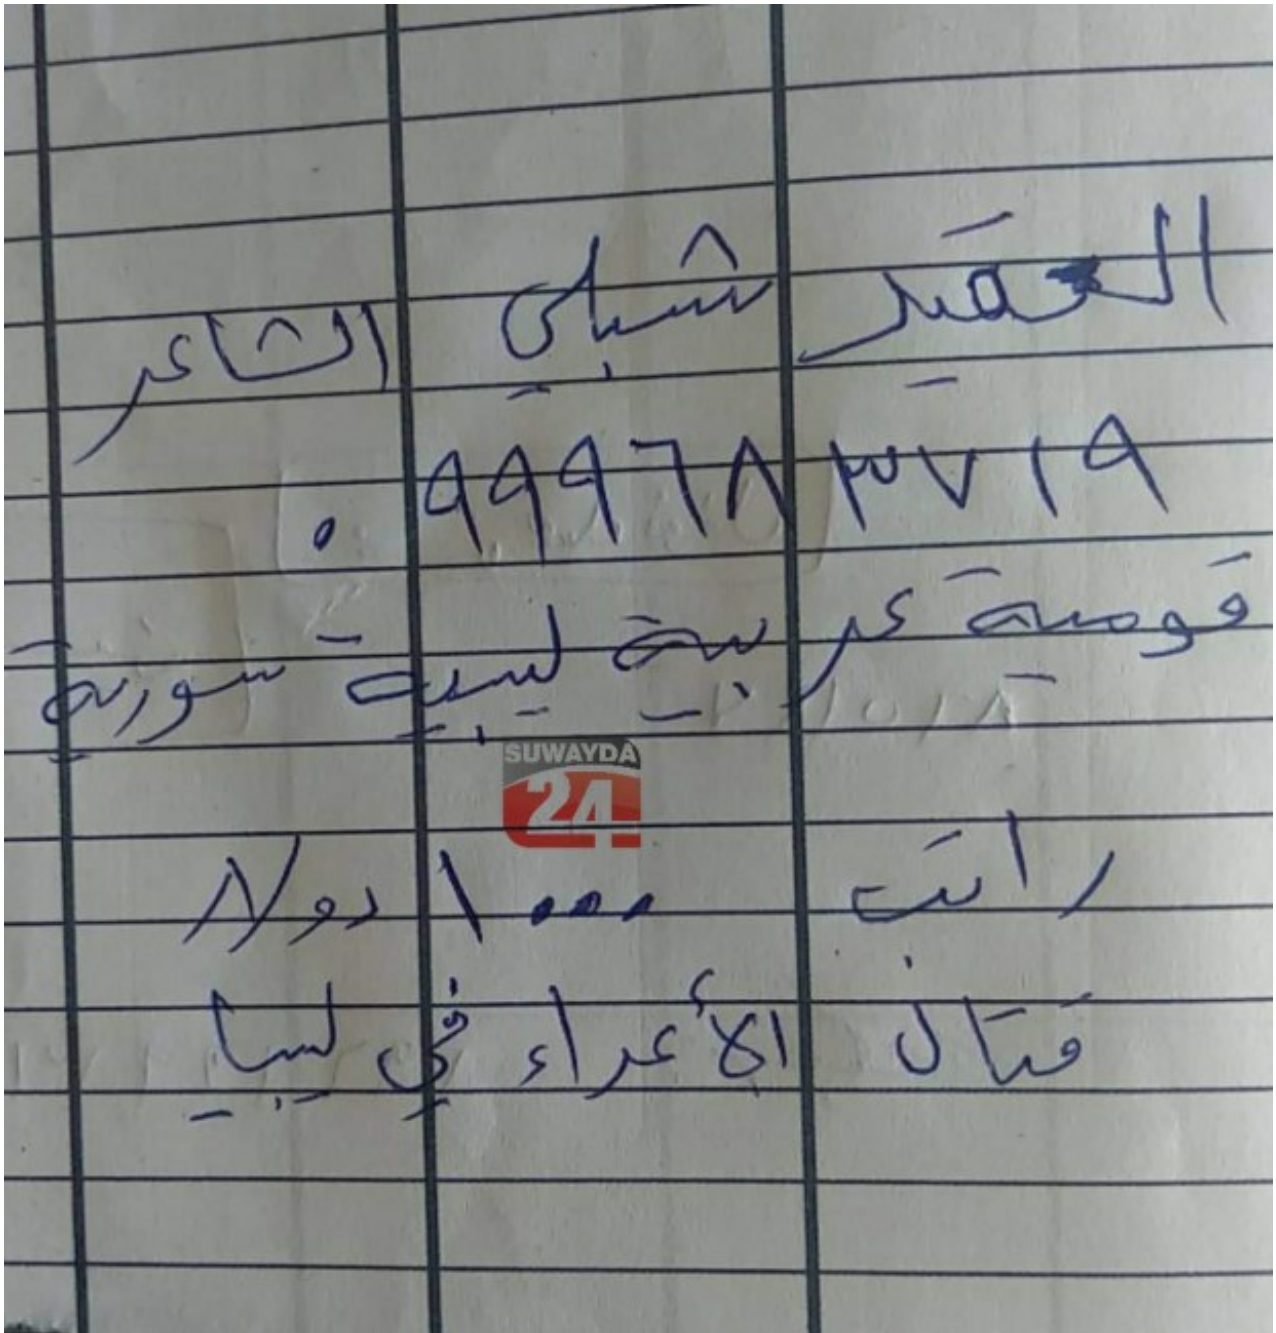 العقيد شبلي الشاعر
٠٩٩٩٦٨٣٧١٩
قومية عربية ليبية سورية
SUWAYDA
24
راتب ١٠٠٠ دولار
قتال الأعداء في ليبيا